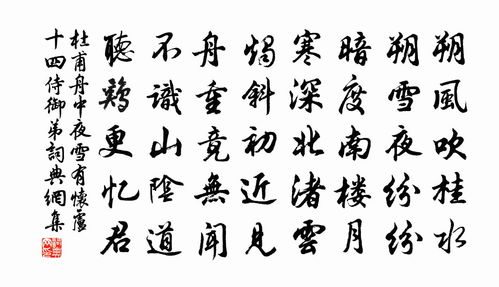 朔風吹桂水
朔雪夜紛紛
暗度南楼月
寒深北渚雲
燭斜初近見
舟重竟無聞
不識山陰道
聽鷄更忆君
杜甫舟中夜雪有懷盧
十四侍御弟詞典網集